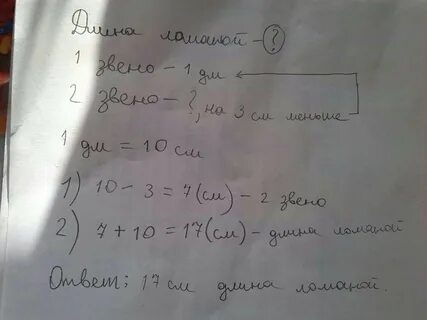 Длина ломаной - ?
1 звено - 1 дм
2 звено - ?, на 3 см меньше
1 дм = 10 см
1) 10 - 3 = 7 (см) - 2 звено
2) 7 + 10 = 17 (см) - длина ломаной
Ответ: 17 см длина ломаной.